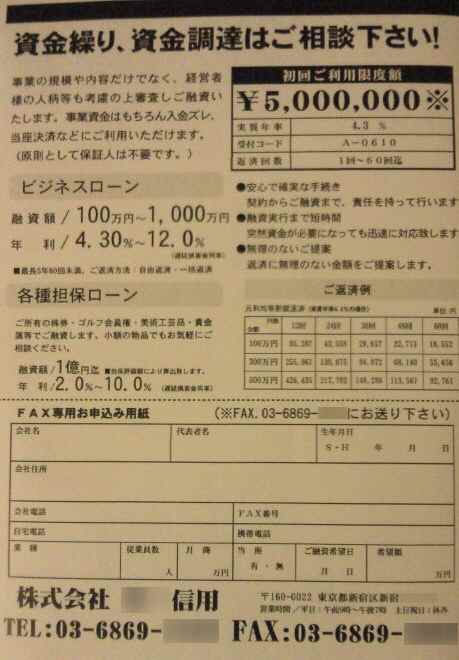 資金繰り、資金調達はご相談下さい!
事業の規模や内容だけでなく、経営者
様の人柄等も考慮の上審査しご融資い
たします。事業資金はもちろん入金ズレ、
当座決済などにご利用いただけます。
(原則として保証人は不要です。)
初回ご利用限度額
¥5,000,000※
実質年率 4.3 %
受付コード A-0610
返済回数 1回~60回迄
ビジネスローン
融資額/100万円~1,000万円
年 利/4.30%~12.0%
(遅延損害金同率)
■最長5年60回未満、ご返済方法:自由返済・一括返済
●安心で確実な手続き
契約からご融資まで、責任を持って行います
●融資実行まで短時間
突然資金が必要になっても迅速に対応致します
●無理のないご提案
返済に無理のない金額をご提案します。
各種担保ローン
ご所有の株券・ゴルフ会員権・美術工芸品・貴金
属等でご融資します。小額の物品でもお気軽にご
相談ください。
融資額/1億円迄
年 利/2.0%~10.0%
(遅延損害金同率)
ご返済例
元利均等割賦返済 単位 円
回数 金額 12回 24回 36回 48回 60回
100万円 85,287 18,552
300万円 68,140 55,656
500万円 426,435 217,792 148,288 113,567 92,761
FAX専用お申込み用紙 (※FAX.03-6869- にお送り下さい)
会社名 代表者名 生年月日
S・H 年 月 日
会社住所
会社電話 FAX番号
自宅電話 携帯電話
業種 従業員数 月商 当座 ご融資希望日 希望額
人 万円 有・無 月 日 万円
株式会社 信用
〒160-0022 東京都新宿区新宿
営業時間/平日:午前9時~午後7時 土日祝日:休外
TEL:03-6869- FAX:03-6869-